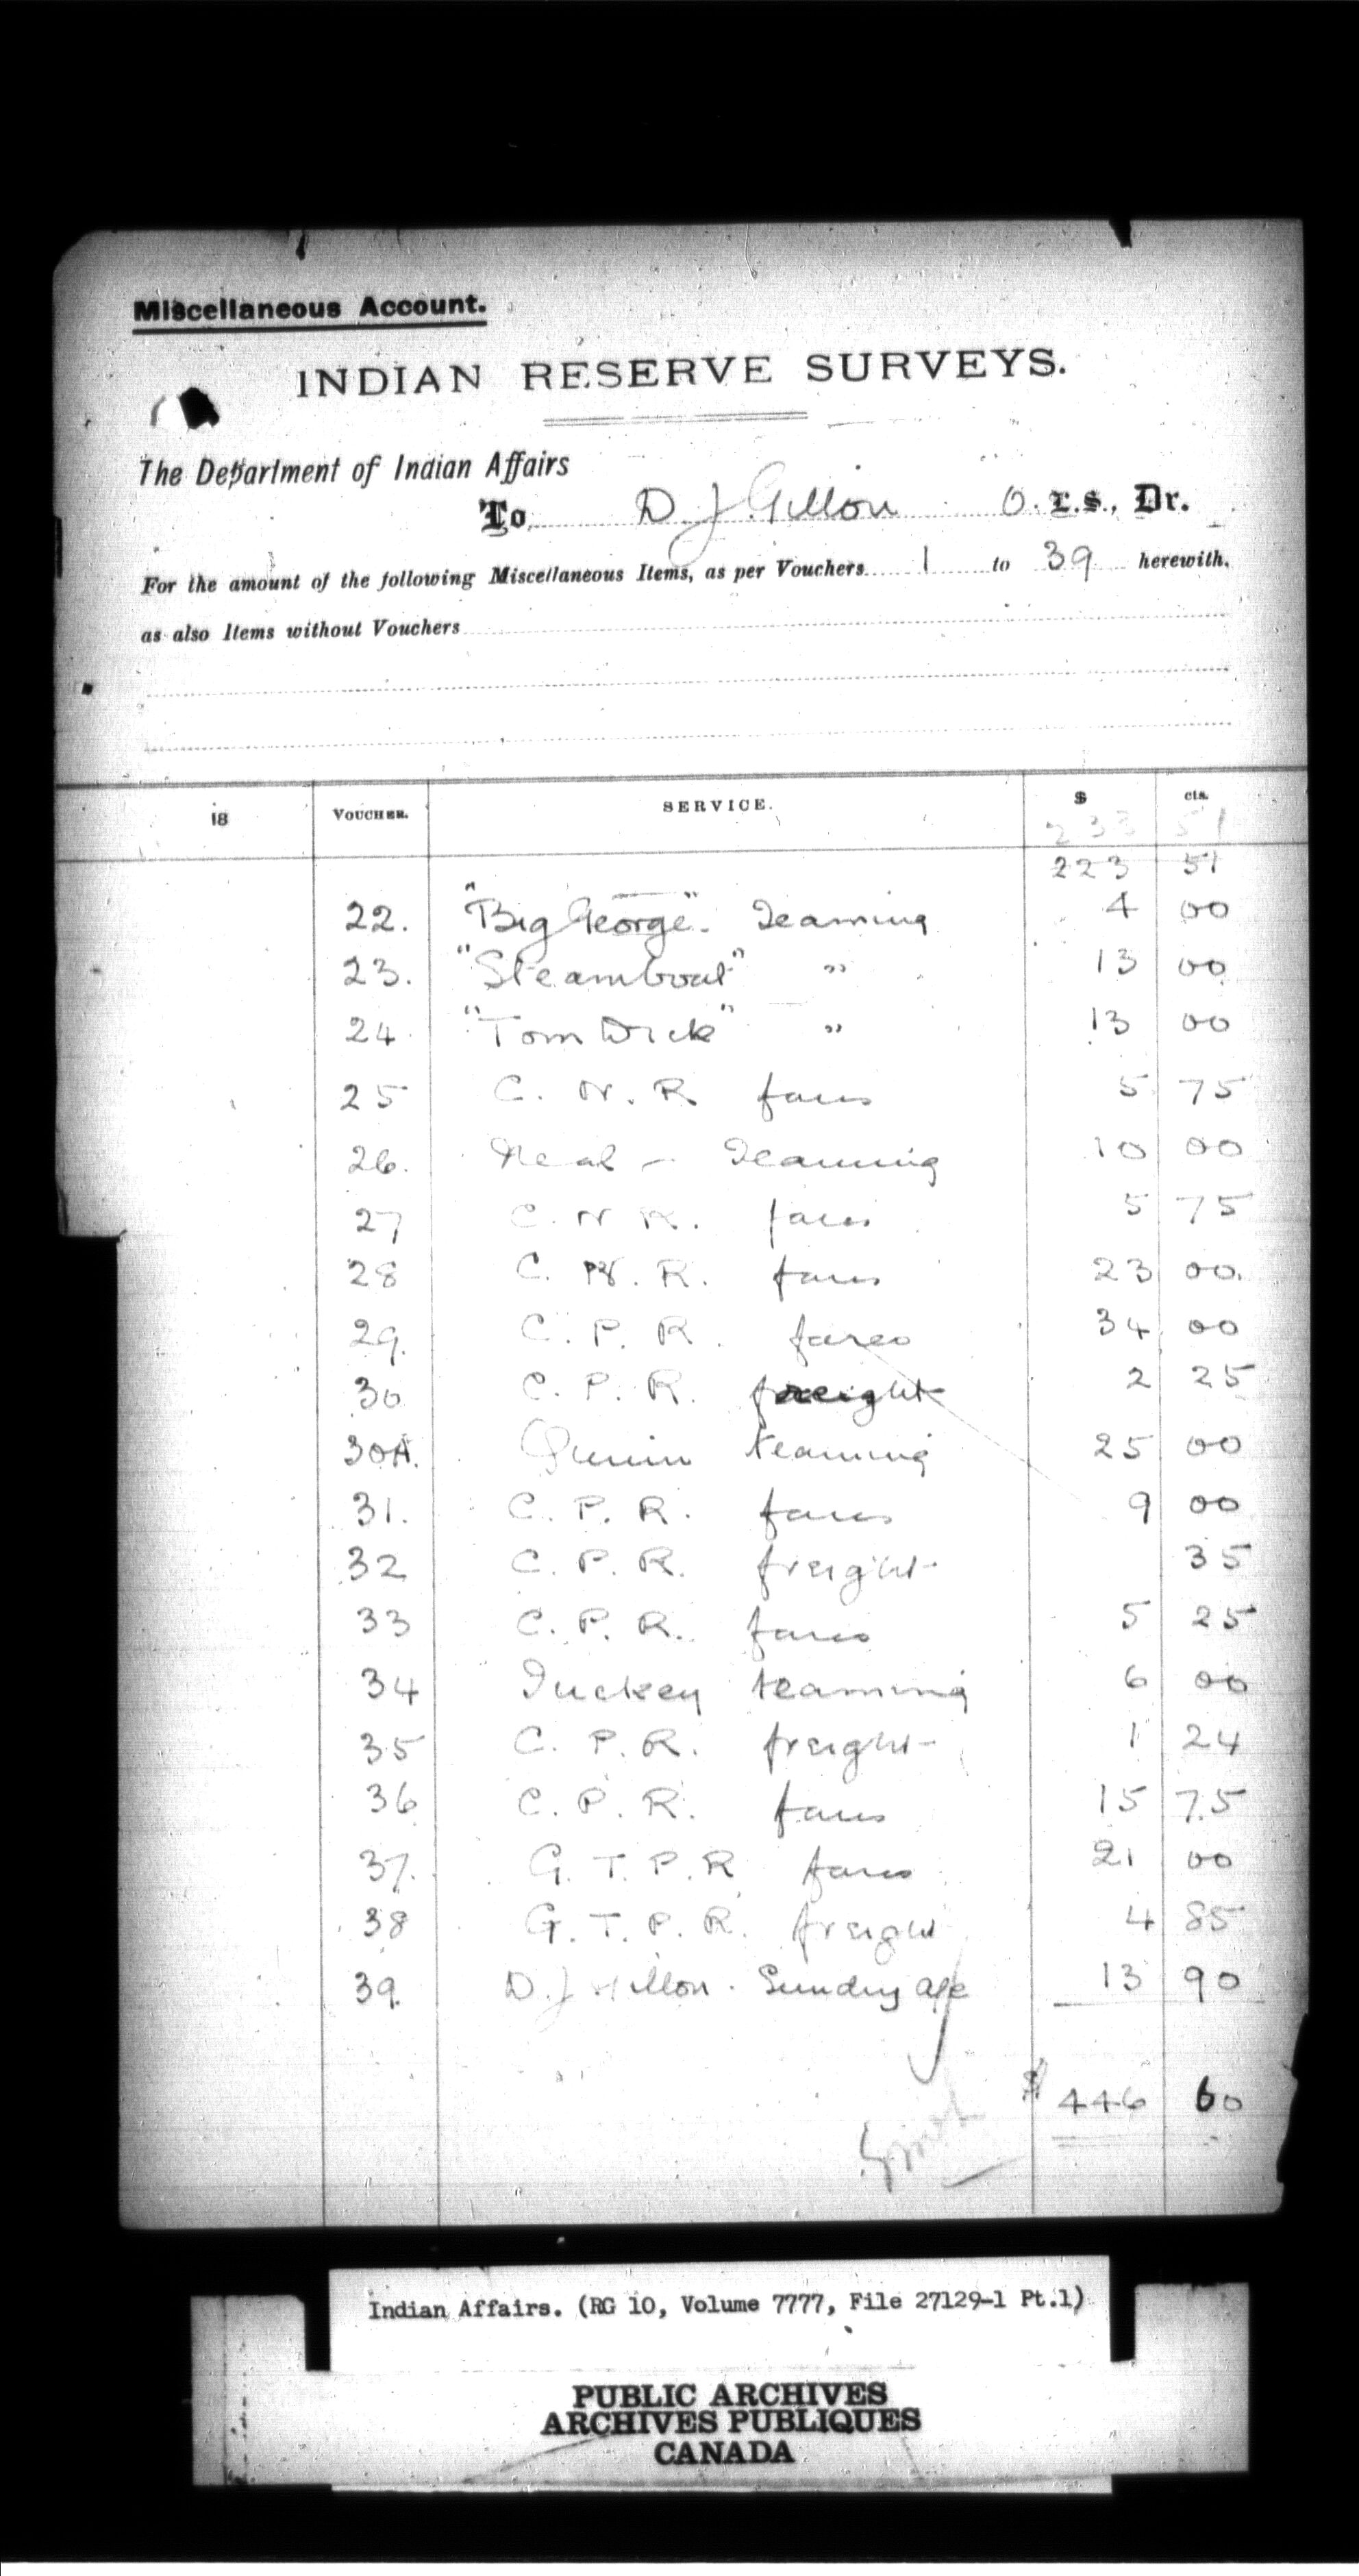 Miscellaneous Account.
INDIAN RESERVE SURVEYS.
The Department of Indian Affairs
To D. J. Gillon O. L.S., Dr.
For the amount of the following Miscellaneous Items, as per Vouchers 1 to 39 herewith,
as also Items without Vouchers
18 VOUCHER. SERVICE. $ cts.
233 51
223 51
22. "Big George". Teaming 4 00
23. "Steamboat" " 13 00
24 "Tom Dick" " 13 00
25 C. N. R fares 5 75
26. Neal - Teaming 10 00
27 C. N R. fares 5 75
28 C. R. fares 23 00
29. C. P. R. fares 34 00
30 C. P. R. freight 2 25
30A. teaming 25 00
31. C. P. R. fares 9 00
32 C. P. R. freight 35
33 C. P. R. fares 5 25
34 Tuckey teaming 6 00
35 C. P. R. freight 1 24
36 C. P. R. fares 15 75
37. G. T. P. R fares 21 00
38 G. T. P. R. freight 4 85
39. D. J Gillon. Sundry a/c 13 90
$ 446 60
Indian Affairs. (RG 10, Volume 7777, File 27129-1 Pt.1)
PUBLIC ARCHIVES
ARCHIVES PUBLIQUES
CANADA